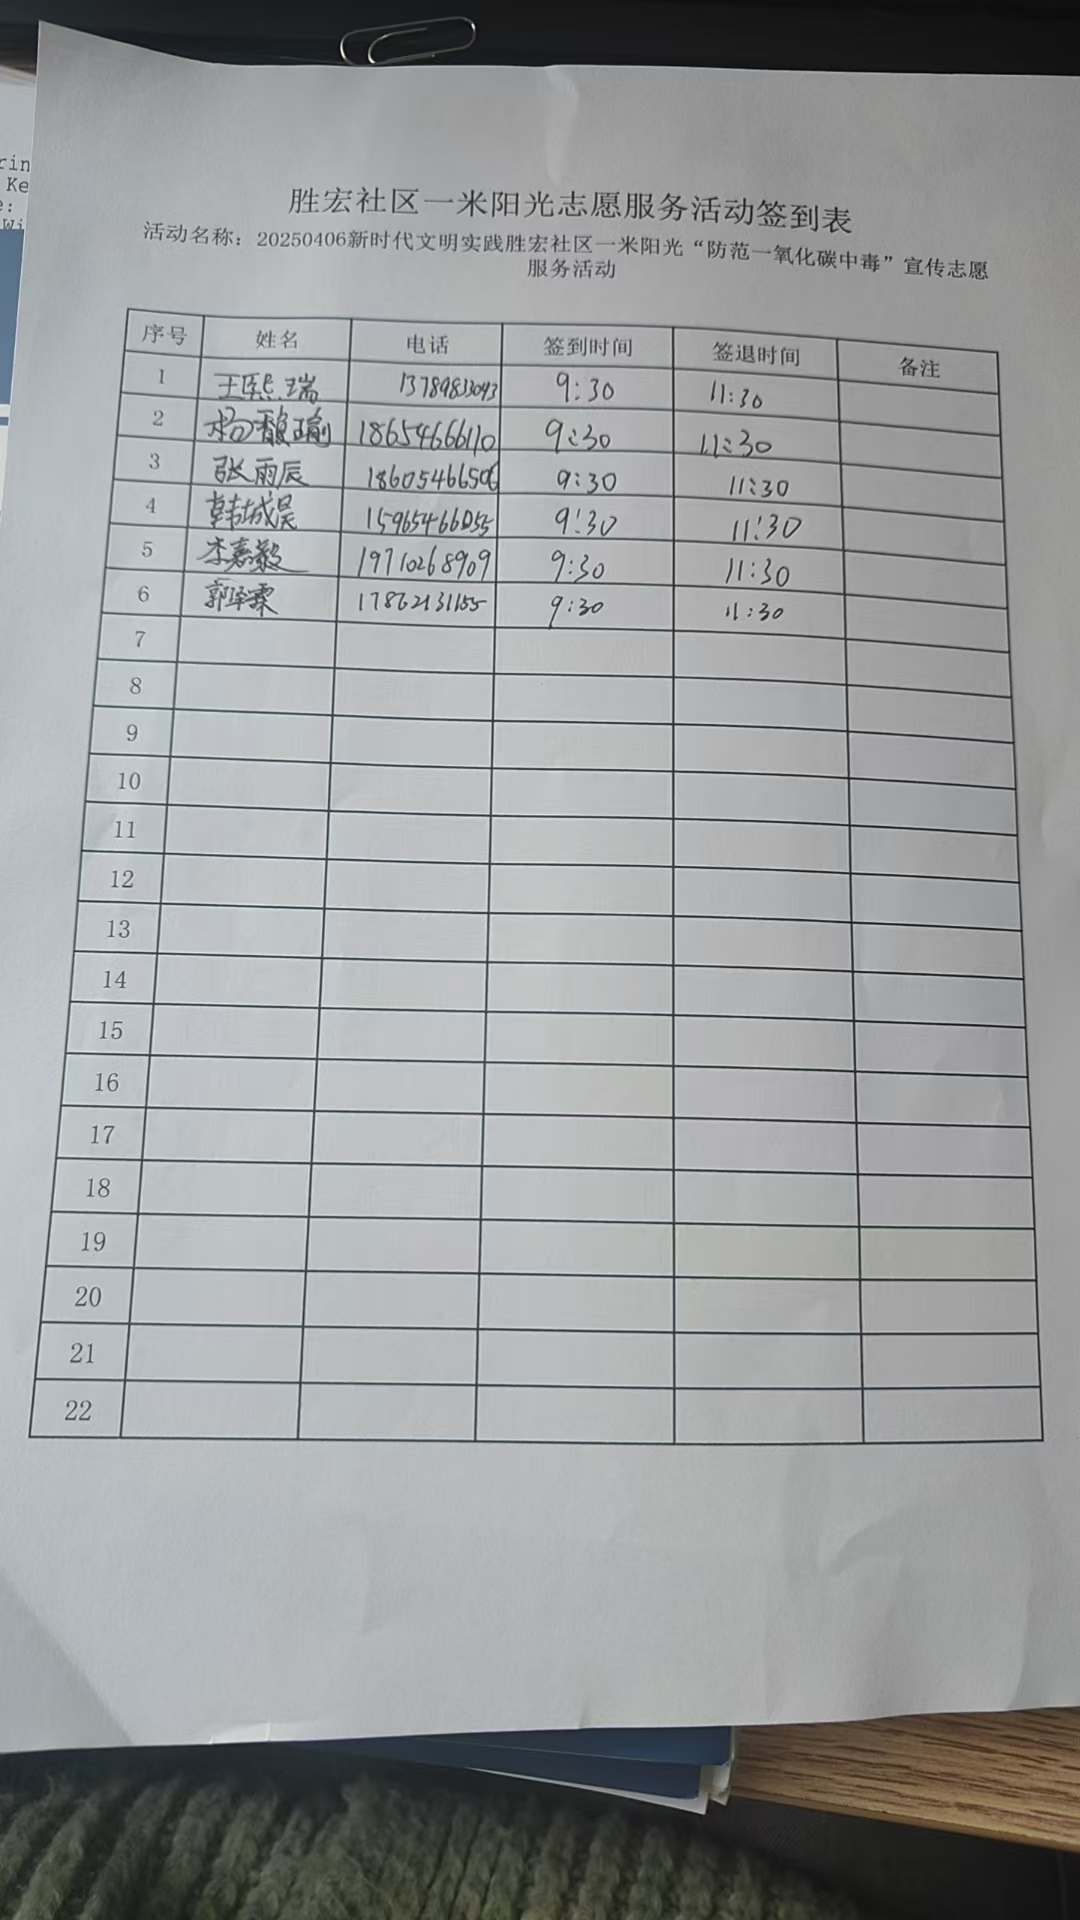 rin
Ke
e:
Wi
胜宏社区一米阳光志愿服务活动签到表
活动名称：20250406新时代文明实践胜宏社区一米阳光“防范一氧化碳中毒”宣传志愿
服务活动
序号 姓名 电话 签到时间 签退时间 备注
1 王熙瑞 13789833093 9:30 11:30
2 杨馥瑜 18654666110 9:30 11:30
3 张雨辰 18605466506 9:30 11:30
4 韩城昊 15965466055 9:30 11:30
5 李嘉毅 19710268909 9:30 11:30
6 郭泽霖 17862131155 9:30 11:30
7
8
9
10
11
12
13
14
15
16
17
18
19
20
21
22